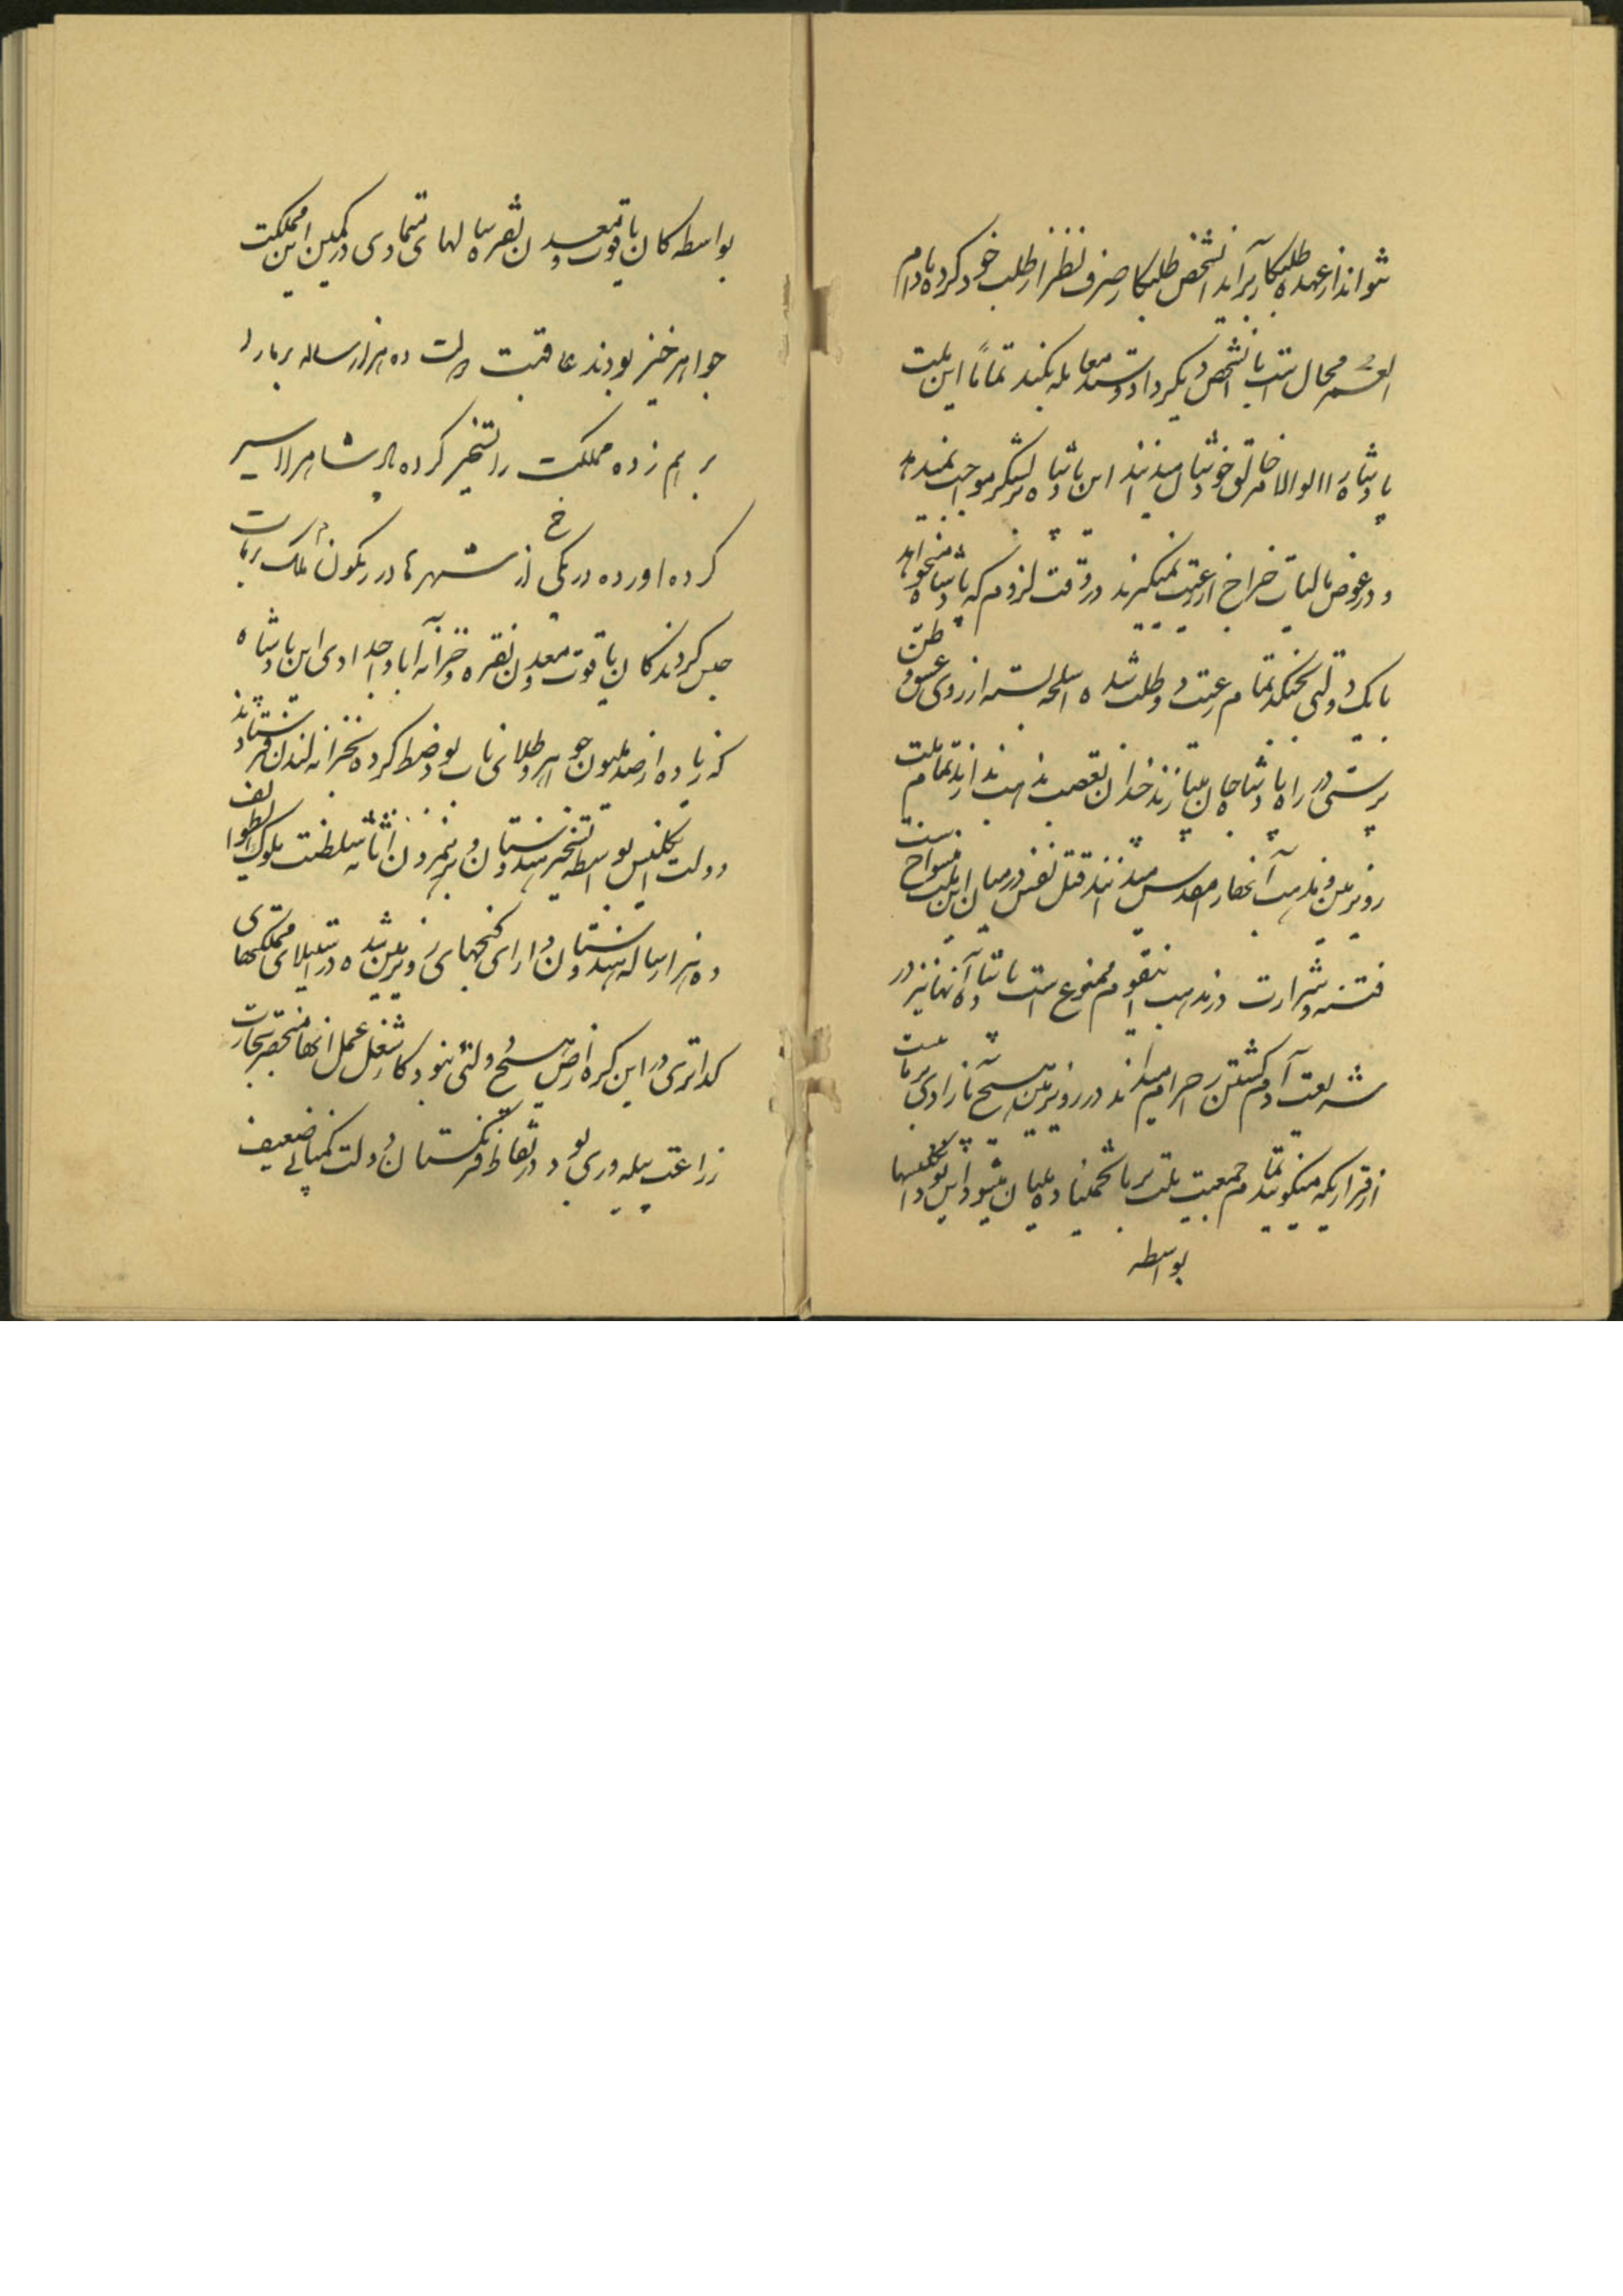 نتواند از عهده طلبکار برآید آنشخص طلبکار صرف نظر از طلب خود کرده مادام
العمر محال است با آنشخص دیگر داد و ستد معامله بکند تماماً این ملت
پادشاه را الوالامر خالق خودشان میدانند این پادشاه بلشکر مواجب نمیدهد
و در عوض مالیات خراج از رعیت نمیگیرند در وقت لزوم که پادشاه میخواهد
با یک دولتی بجنگد تمام رعیت داوطلب شده اسلحه بسته از روی عشق وطن
پرستی در راه پادشاه جان میبازند خداوندان تعصب مذهب‌اند تمام ملت
روی زمین مذهب آنها را مقدس میدانند قتل نفس در میان این ملت منسوخ است
فتنه و شرارت در مذهب اینقوم ممنوع است پادشاه آنها نیز در
شریعت آدم کشتن را حرام میداند در روی زمین هیچ نژادی برماست
از قراریکه میگویند تمام جمعیت ملت برما شصت ملیان میشود این بود انگلیسها
بواسطه
بواسطه کان یاقوت و معدن نقره سالهای متمادی در کمین این مملکت
جواهرخیز بودند عاقبت دولت ده هزار ساله برما را
برهم زده مملکت را تسخیر کرده پادشاهرا اسیر
کرده آورده در یکی از شهرها در رنگون ملک برماست
حبس کردند کان یاقوت و معدن نقره و خزانه آبا و اجدادی این پادشاه
که زیاده از صد ملیون جواهر و طلای ناب بود ضبط کرده بخزانه لندن فرستادند
دولت انگلیس بواسطه تسخیر هندوستان و بردن اثاثیه سلطنت ملوک الطوایف
ده هزار ساله هندوستان دارای گنجهای روی زمین شده در استیلای مملکتهای
گدا‌تری در این کره ارض هیچ دولتی نبود کار شغل عمل آنها منحصر بتجارت
زراعت پیله‌وری بود در نقاط فرنگستان دولت کمپانی ضعیف